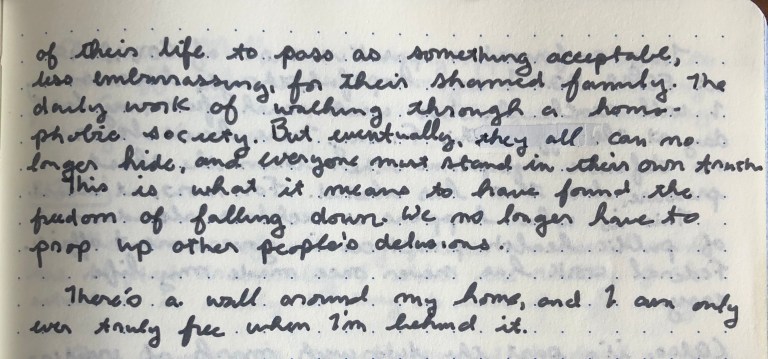 of their life to pass as something acceptable,
less embarrassing, for their shamed family. The
daily work of walking through a homo-
phobic society. But eventually, they all can no
longer hide, and everyone must stand in their own truth.
This is what it means to have found the
freedom of falling down. We no longer have to
prop up other people's delusions.
There's a wall around my home, and I am only
ever truly free when I'm behind it.